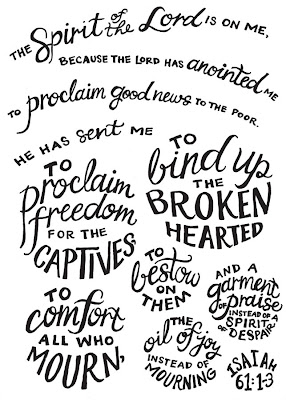 THE Spirit of the Lord IS ON ME,
BECAUSE THE LORD HAS anointed ME
TO proclaim good news TO THE POOR.
HE HAS sent ME
TO
bind up
THE
BROKEN
HEARTED
TO
proclaim
freedom
FOR THE
CAPTIVES,
TO
comfort
ALL WHO
MOURN,
TO
bestow
ON
THEM
THE
oil of joy
INSTEAD OF
MOURNING
AND A
garment
of praise
INSTEAD OF A
SPIRIT
OF DESPAIR
ISAIAH
61:1-3